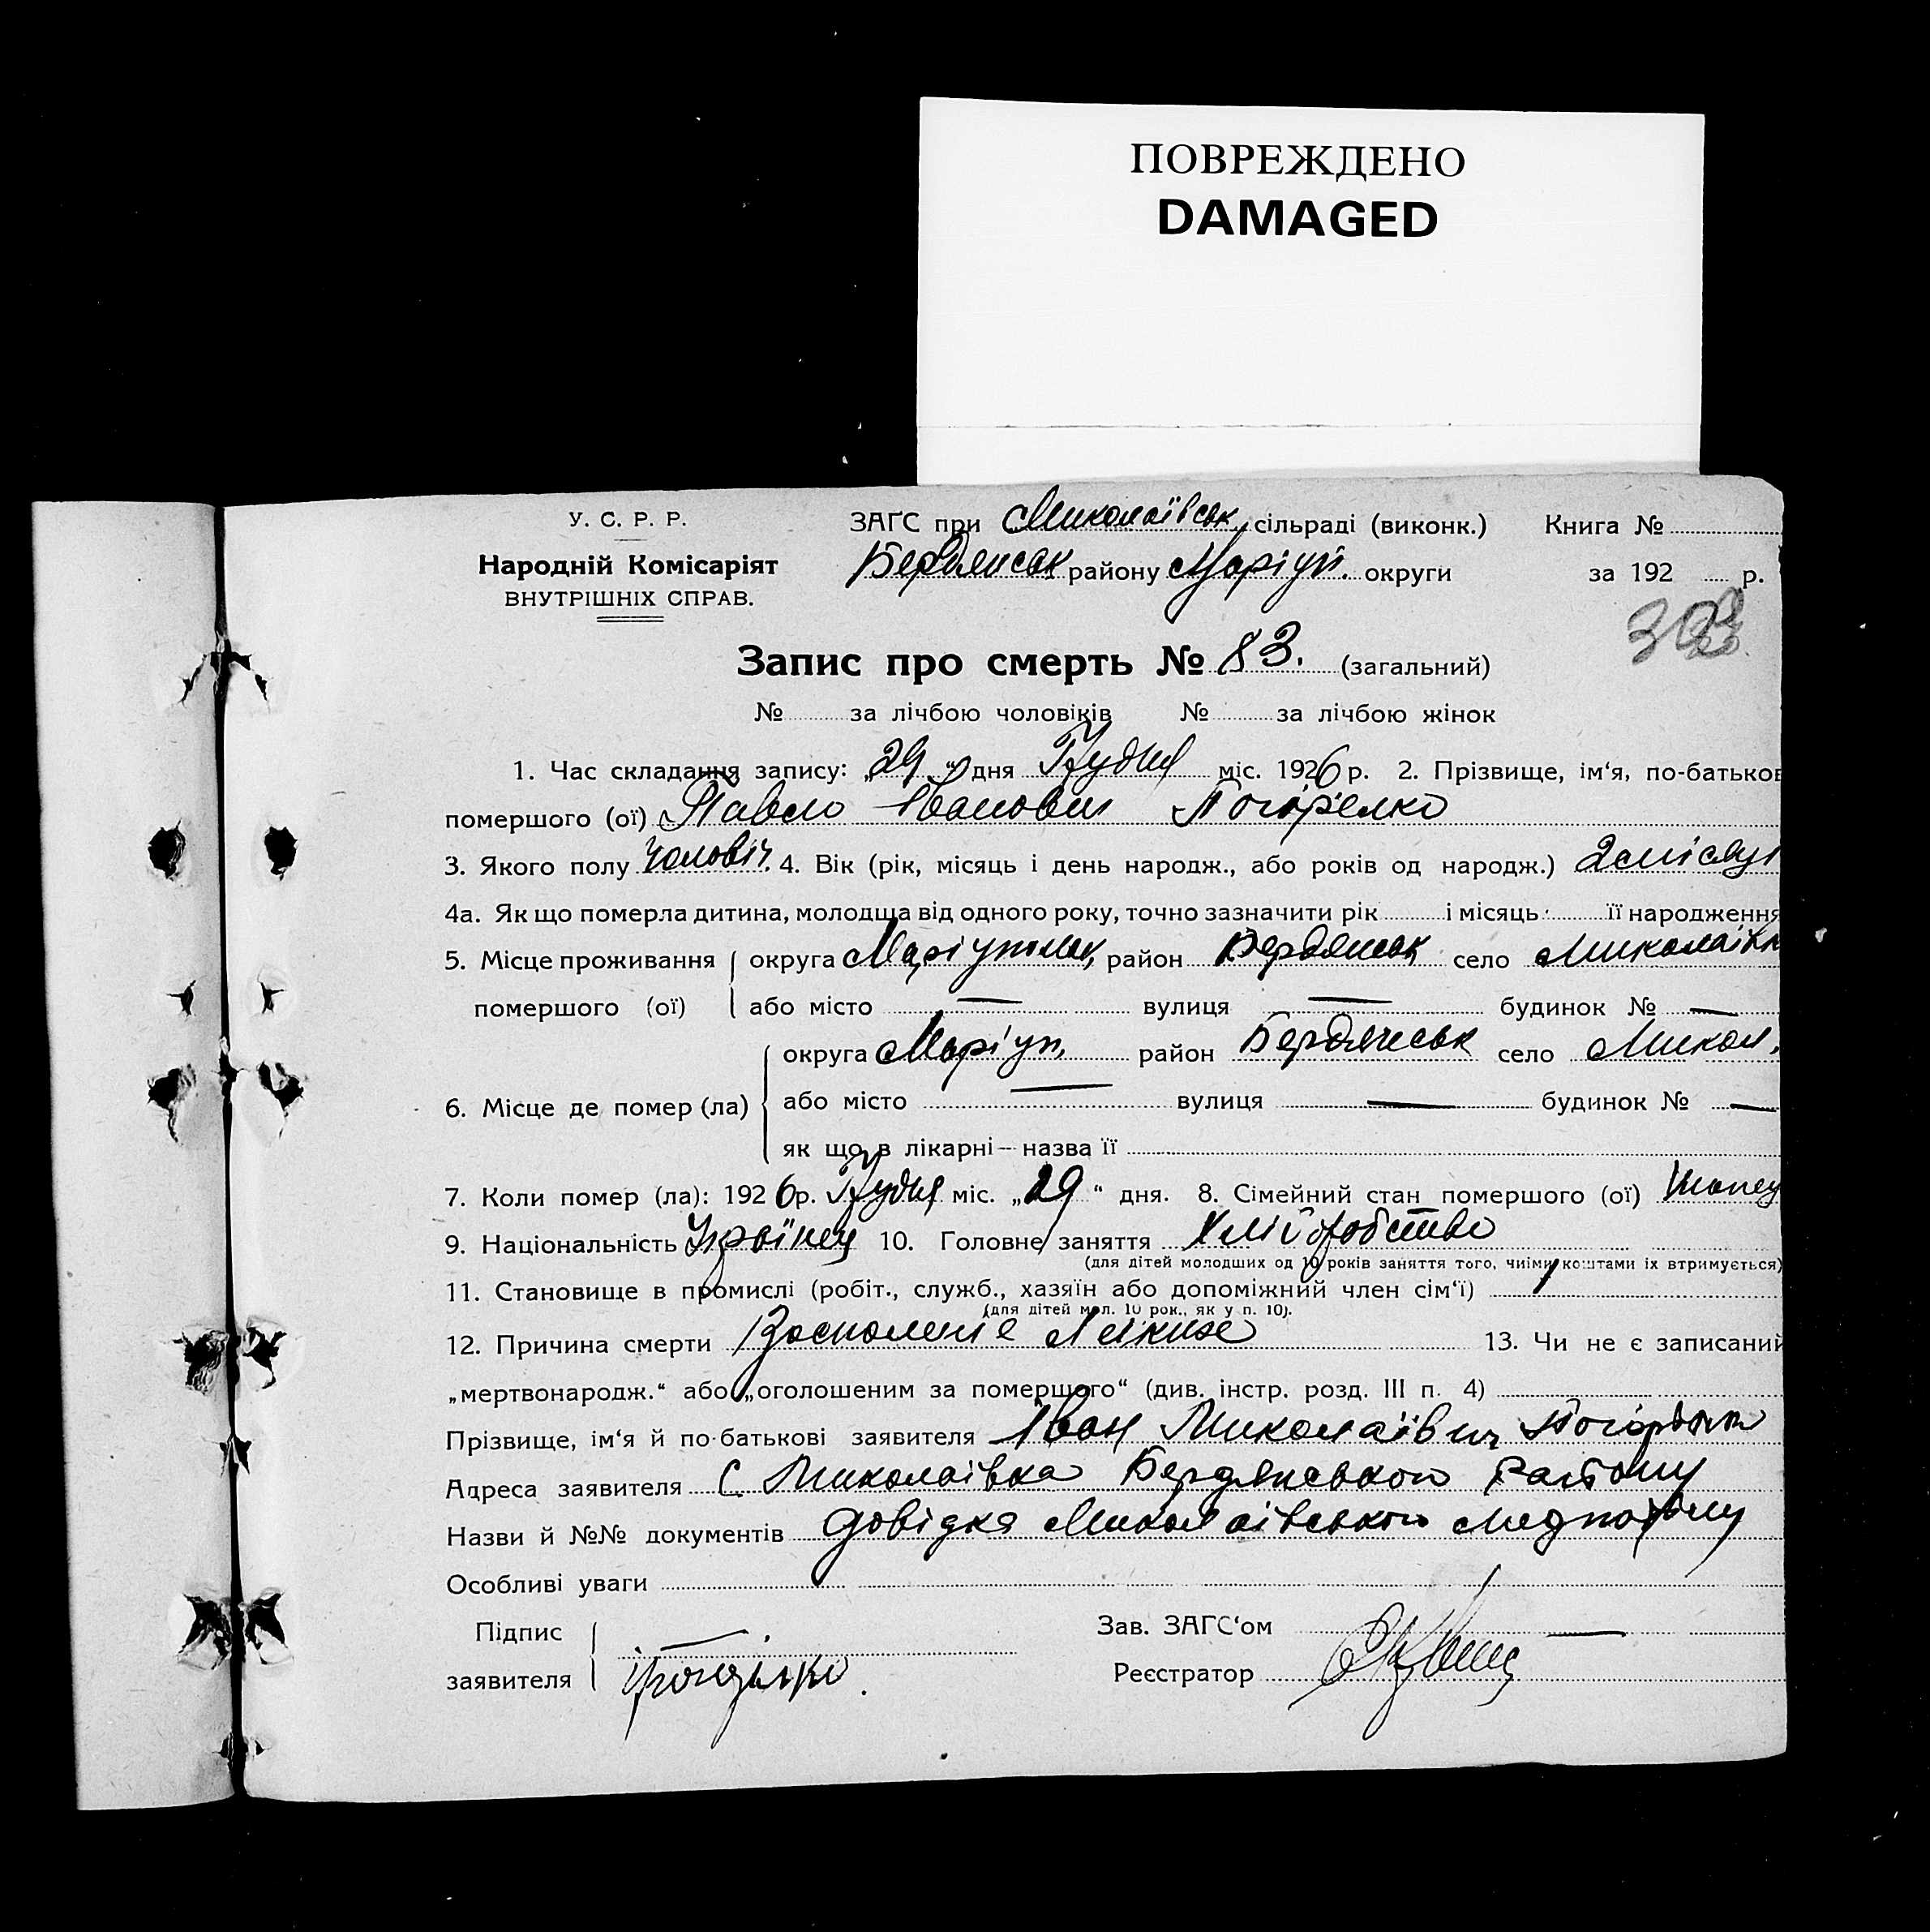 ПОВРЕЖДЕНО
DAMAGED
У. С. Р. Р.
Народній Комісаріят
ВНУТРІШНІХ СПРАВ.
ЗАГС при Миколаївськ. сільраді (виконк.) Книга №
Бердянськ району Маріуп. округи за 192 р.
Запис про смерть № 83. (загальний)
№ за лічбою чоловіків № за лічбою жінок
1. Час складання запису: „29“ дня Грудня міс. 1926 р. 2. Прізвище, ім‘я, по-батьков
помершого (ої) Павло Іванович Погорелко
3. Якого полу Чоловіч. 4. Вік (рік, місяць і день народж., або років од народж.) 2 місяці
4а. Як що померла дитина, молодща від одного року, точно зазначити рік і місяць її народження
5. Місце проживання округа Маріупольск, район Бердянськ село Миколаївк
помершого (ої) або місто — вулиця — будинок № —
округа Маріуп. район Бердянськ село Микол.
6. Місце де помер (ла) або місто — вулиця — будинок № —
як що в лікарні — назва її
7. Коли помер (ла): 1926 р. Грудня міс. „29“ дня. 8. Сімейний стан помершого (ої)
9. Національність Українец 10. Головне заняття Хліборобство
(для дітей молодших од 10 років заняття того, чиїми коштами їх втримується)
11. Становище в промислі (робіт., служб., хазяїн або допоміжний член сім‘ї)
(для дітей мол. 10 рок., як у п. 10).
12. Причина смерти Восполеніє Легких 13. Чи не є записаний
„мертвонародж.“ або „оголошеним за померщого“ (див. інстр. розд. III п. 4)
Прізвище, ім‘я й по-батькові заявителя Іван Миколаївич Погорелко
Адреса заявителя С. Миколаївка Бердянського Району
Назви й №№ документів Довідка Миколаївського медпо
Особливі уваги
Підпис Зав. ЗАГС‘ом —
заявителя Реєстратор